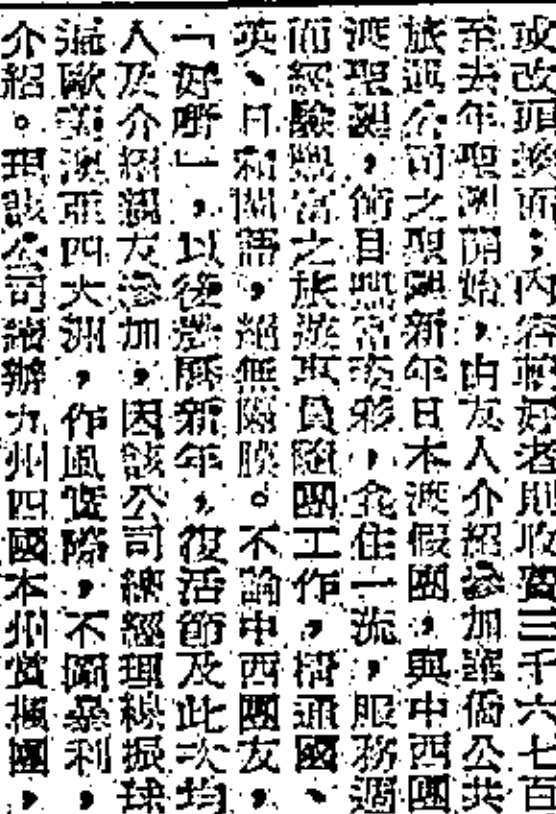 或改頭換面；內容較好者則收費三千六七百
至去年聖誕開始，由友人介紹參加華僑公共
旅遊公司之聖誕新年日本渡假團，與中西團
渡聖誕，節目豐富多彩，食住一流，服務週
而經驗豐富之旅遊專員隨團工作，精通國、
英、日和閩語，絕無隔膜。不論中西團友，
「好嘢」，以後農曆新年，復活節及此次均
人及介紹親友參加，因該公司總經理線振球
遍歐美澳亞四大洲，作風實際，不圖暴利，
介紹。現該公司續辦九州四國本州賞楓團，